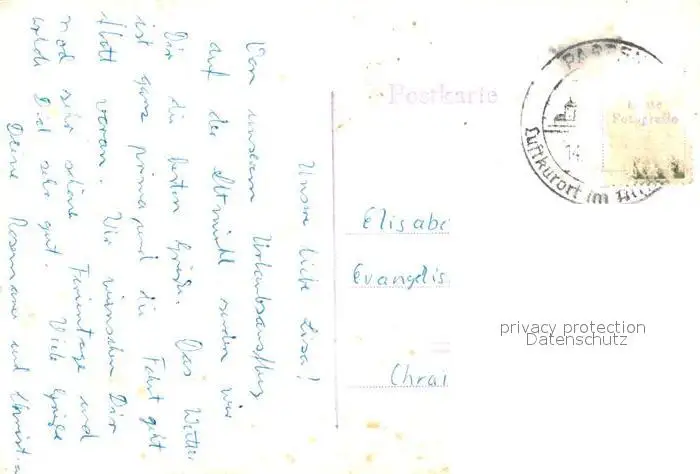 Unsre liebe Lisa!
Von unserem Urlaubsausflug
auf der Altmühl senden wir
Dir die besten Grüße. Das Wetter
ist ganz prima und die Fahrt geht
flott voran. Wir wünschen Dir
noch sehr schöne Ferientage und
Dich sehr gut. Viele Grüße
Deine Rosemarie und
Postkarte
PAPPEN
14.
Luftkurort im
Fotografie
Elisabe
Evangelis
Chrai
privacy protection
Datenschutz